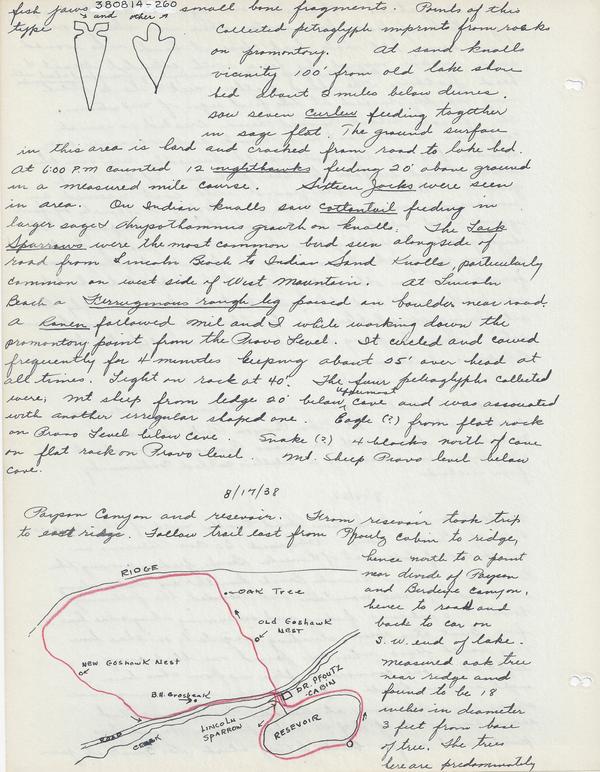 fish jaws 380814-260 small bone fragments. Points of this
type ↑ and other ↑ Collected petraglyph imprints from rocks
on promontory. At sand knolls
vicinity 100' from old lake shore
bed about 2 miles below dunes.
saw seven Curlew feeding together
in sage flat. The ground surface
in this area is hard and cracked from road to lake bed.
At 6:00 P.M counted 12 nighthawks feeding 20' above ground
in a measured mile course. Sixteen Jacks were seen
in area. On Indian knolls saw Cottontail feeding in
larger sage & Chrysothamnus growth on knolls. The Lark
Sparrows were the most common bird seen alongside of
road from Lincoln Beach to Indian Sand Knolls, particularly
common on west side of West Mountain. At Lincoln
Beach a Ferruginous rough leg paused on boulder near road.
A Raven followed Mil and I while working down the
promontory point from the Provo Level. It circled and cawed
frequently for 4 minutes keeping about 35' over head at
all times. Light on rock at 40. The four petraglyphs collected
were; Mt sheep from ledge 20' below uppermost cave and was associated
with another irregular shaped one. Eagle (?) from flat rock
on Provo Level below cave. Snake (?) 4 blocks north of cave
on flat rock on Provo level. Mt. Sheep Provo level below
cave.
8/17/38
Payson Canyon and reservoir. From reservoir took trip
to east ridge. Follow trail east from Pfoutz cabin to ridge,
hence north to a point
near divide of Payson
and Berdine Canyon,
hence to road and
back to car on
S.W. end of lake.
Measured oak tree
near ridge and
found to be 18
inches in diameter
3 feet from base
of tree. The trees
here are predominately
RIDGE
OAK TREE
OLD GOSHAWK
NEST
NEW GOSHAWK NEST
B.H. Grosbeak
DR. PFOUTZ
CABIN
LINCOLN
SPARROW
ROAD
CREEK
RESERVOIR